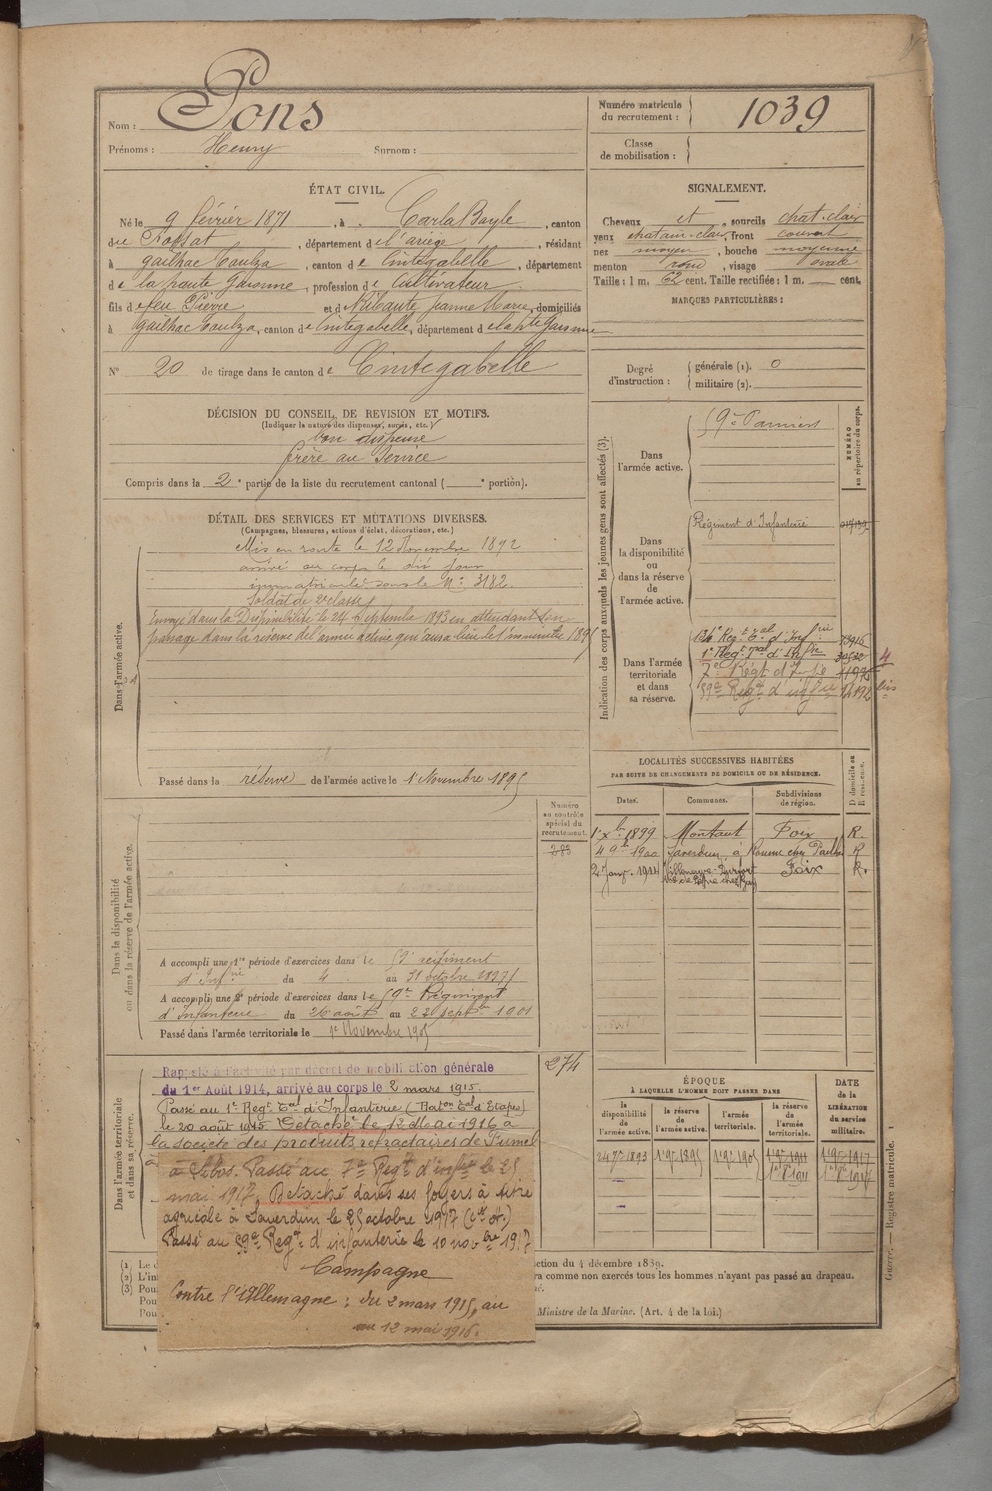 Nom : Pons
Prénoms : Henry Surnom :
Numéro matricule du recrutement : 1039
Classe de mobilisation :
ÉTAT CIVIL.
Né le 9 février 1871, à Carla Bayle, canton
du Fossat, département de l'ariège, résidant
à gailhac Toulza, canton de Cintegabelle, département
de la haute garonne, profession de Cultivateur
fils de feu Pierre et d Ribaute Jeanne Marie, domiciliés
à gailhac Toulza, canton de Cintegabelle, département de la hte garonne
N° 20 de tirage dans le canton de Cintegabelle
SIGNALEMENT.
Cheveux et, sourcils chat. clair
yeux chatain-clair, front couvert
nez moyen, bouche moyenne
menton rond, visage ovale
Taille : 1 m. 62 cent. Taille rectifiée : 1 m. — cent.
MARQUES PARTICULIÈRES :
Degré d'instruction : générale (1). 0
militaire (2).
DÉCISION DU CONSEIL DE REVISION ET MOTIFS.
(Indiquer la nature des dispenses, sursis, etc.)
bon dispensé
frère au Service
Compris dans la 2e partie de la liste du recrutement cantonal ( e portion).
DÉTAIL DES SERVICES ET MUTATIONS DIVERSES.
(Campagnes, blessures, actions d'éclat, décorations, etc.)
Dans l'armée active.
Mis en route le 12 Novembre 1892
arrivé au corps le dit jour
immatriculé sous le N° 3182
Soldat de 2e classe
Envoyé dans la Disponibilité le 24 septembre 1893 en attendant son
passage dans la réserve de l'armée active qui aura lieu le 1er novembre 1895
Passé dans la réserve de l'armée active le 1er Novembre 1895
Indication des corps auxquels les jeunes gens sont affectés (3).
NUMÉRO au répertoire du corps.
Dans l'armée active.
59e Pamiers
Dans la disponibilité ou dans la réserve de l'armée active.
Régiment d'Infanterie
Dans l'armée territoriale et dans sa réserve.
136e Regt Tal d'Infrie
1er Regt Tal d'Infie
7e Régt d'Infie
59e Regt d'infie
LOCALITÉS SUCCESSIVES HABITÉES
PAR SUITE DE CHANGEMENTS DE DOMICILE OU DE RÉSIDENCE.
Dates. Communes. Subdivisions de région. D domicile ou R résidence.
1er Xbre 1899 Montaut Foix R.
4 9bre 1900 Saverdun, à R
24 Janv. 1914 Villeneuve- Foix R.
Dans la disponibilité ou dans la réserve de l'armée active.
Numéro au contrôle spécial du recrutement.
283
A accompli une 1re période d'exercices dans le 59e régiment
d'Infrie du 4 au 31 octobre 1897
A accompli une 2e période d'exercices dans le 59e Régiment
d'Infanterie du 26 août au 22 septre 1901
Passé dans l'armée territoriale le 1er Novembre 1905
Dans l'armée territoriale et dans sa réserve.
274
Rappelé à l'activité par décret de mobilisation générale
du 1er Août 1914, arrivé au corps le 2 mars 1915.
Passé au 1er Regt Tal d'Infanterie (Baton Tal d'Etapes)
le 20 août 1915 Détaché le 12 Mai 1916 à
la société des produits réfractaires de Fumel
à Libos. Passé au 7e Regt d'infie le 25
mai 1917. Détaché dans ses foyers à titre
agricole à Saverdun le 25 octobre 1917 (Cie A.)
Passé au 59e Regt d'infanterie le 10 novbre 1917
Campagne
Contre l'Allemagne : du 2 mars 1915, au
au 12 mai 1916.
ÉPOQUE
À LAQUELLE L'HOMME DOIT PASSER DANS
la disponibilité de l'armée active. la réserve de l'armée active. l'armée territoriale. la réserve de l'armée territoriale.
DATE de la LIBÉRATION du service militaire.
24 7e 1893 1er 9e 1895 1er 9e 1905 1er 9e 1911 1er 9e 1917
(1) Le d
(2) L'in
(3) Pou
Pou
Pou
ction du 4 décembre 1889.
ra comme non exercés tous les hommes n'ayant pas passé au drapeau.
Ministre de la Marine. (Art. 4 de la loi.)
Guerre. — Registre matricule. 1